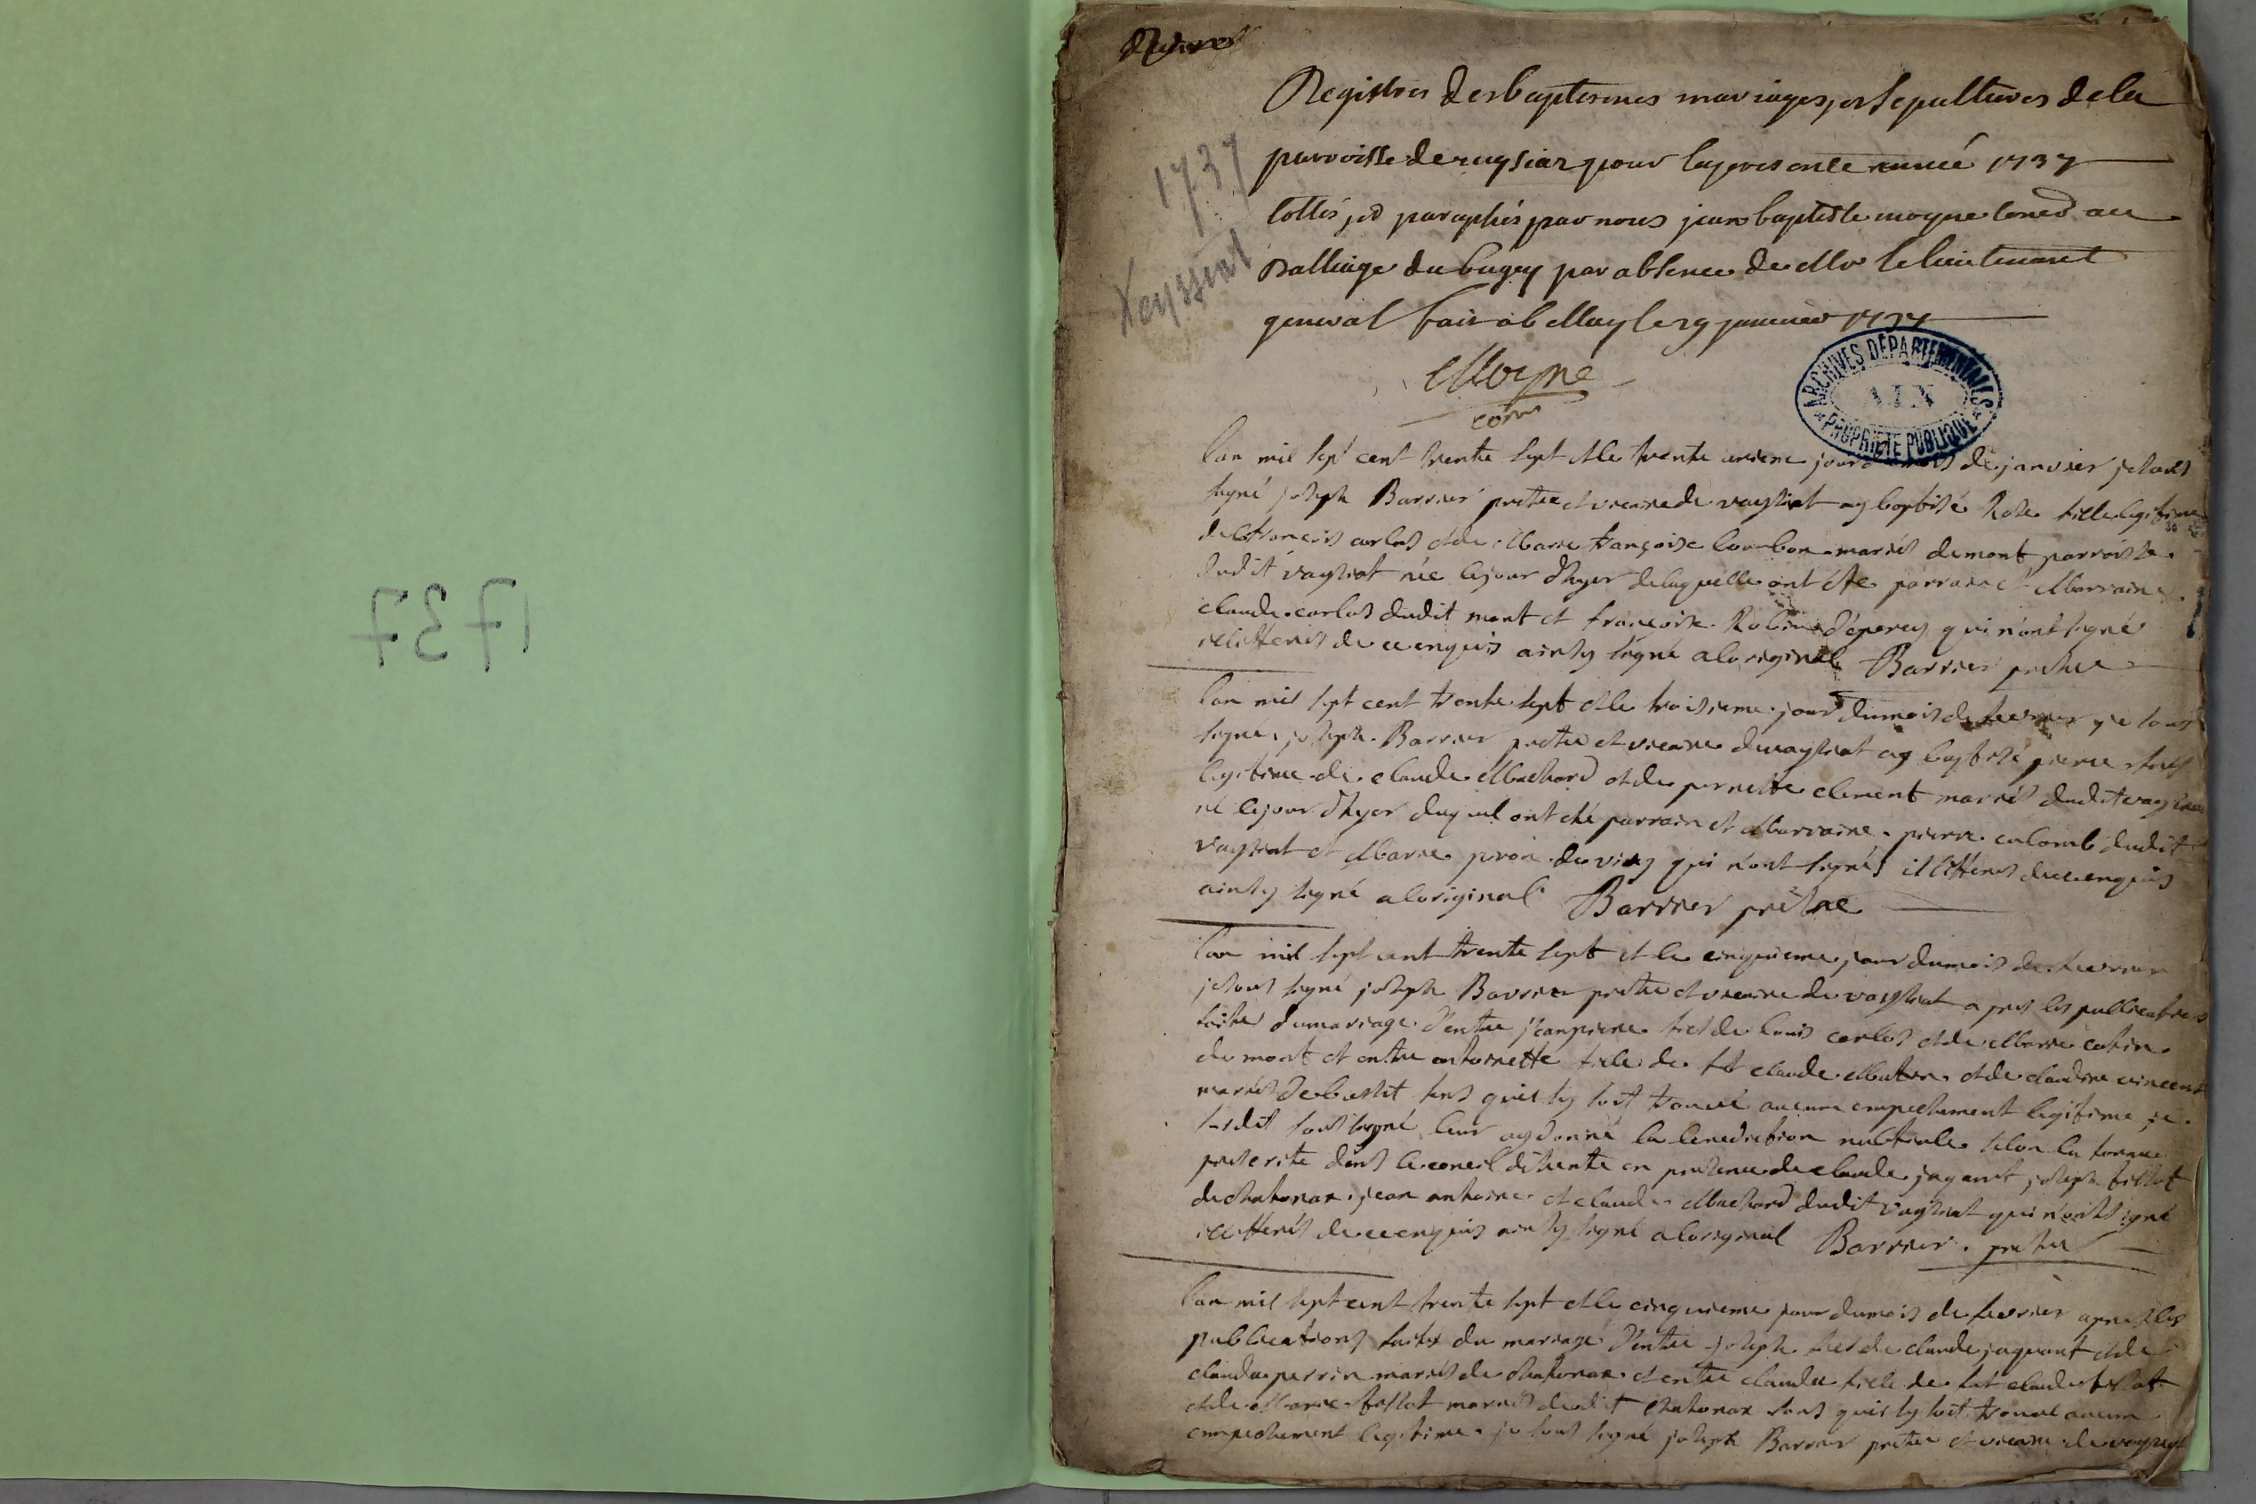 1737
1737
Veyssiat
Registres des baptesmes mariages, et sepultures de la
parroisse de vaysiaz pour la presente année 1737
cottés, et paraphés par nous jean baptiste moyne coner au
Balliage du bugey par absence de Mr le lieutenant
general fait a bellay le 29 janvier 1737
Moyne
coner
ARCHIVES DÉPARTEMENTALES
AIN
PROPRIÉTÉ PUBLIQUE
l'an mil sept cent trente sept et le trente unieme jour du mois de janvier je sous
signé joseph Barrier pretre et vicaire de vaysiat ay baptisé Rose fille legitime
de françois carlos et de Marie françoise bourbon mariés de mont parroisse
dudit vaysiat née le jour d'hyer de laquelle ont été parrain et Marraine
claude carlos dudit mont et françoise Robin d'eperey qui n'ont signé
illitterés de ce enquis ainsy signé a l'original Barrier pretre
l'an mil sept cent trente sept et le troisieme jour du mois de fevrier je sous
signé joseph Barrier pretre et vicaire de vaysiat ay baptisé pierre fils
legitime de claude Muchard et de pernette clement mariés dudit vaysiat
né le jour d'hyer duquel ont été parrain et Marraine pierre colomb dudit
vaysiat et Marie proin de viry qui n'ont signés illitterés de ce enquis
ainsy signé a l'original Barrier prêtre
l'an mil sept cent trente sept et le cinquieme jour du mois de fevrier
je sous signé joseph Barrier pretre et vicaire de vaysiat apres les publications
faites du mariage d'entre jean pierre fils de louis carlos et de Marie cotin
de mont et entre antoinette fille de fet claude Mutin et de claudine vincent
mariés de bussit sens quil sy soit trouvé aucune empechement legitime je
susdit sous signé leur ay donné la benediction nubtiale selon la forme
prescrite dans le conseil de trente en presence de claude jaguent joseph fillot
de chatonax jean antoine et claude Muchard dudit vaysiat qui n'ont signé
illitterés de ce enquis ainsy signé a l'original Barrier pretre
l'an mil sept cent trente sept et le cinquieme jour du mois de fevrier apres les
publications faites du mariage d'entre joseph fils de claude jaguent et de
claudu perrin mariés de chatonax et entre claudu fille de fet claude fillot
et de Marie fillot mariés dudit chatonax sans quil sy soit trouvé aucun
empechement legitime je sous signé joseph Barrier pretre et vicaire de vaysiat